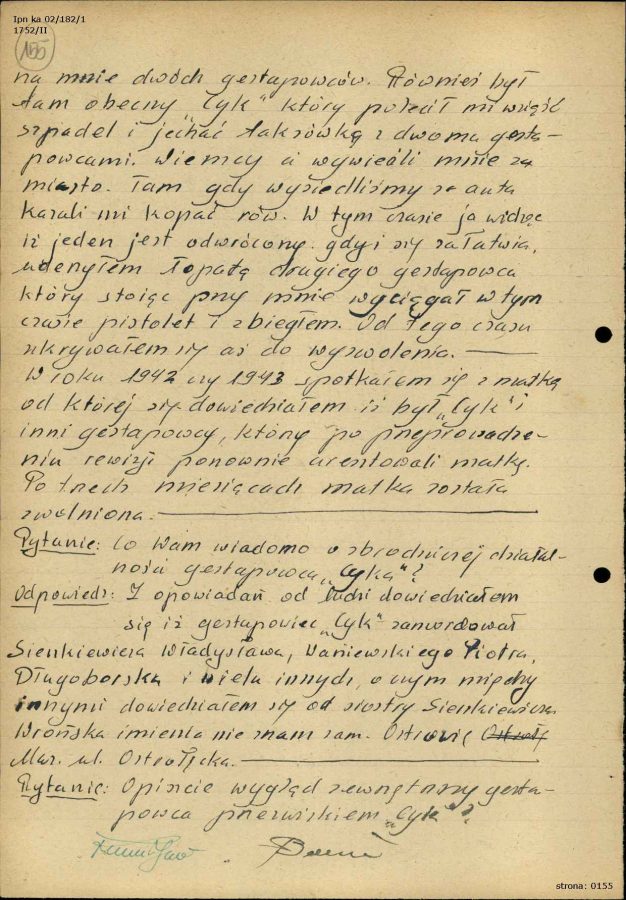 Ipn ka 02/182/1
1752/II
155
na mnie dwóch gestapowców. Również był
tam obecny "Cyk" który polecił mi wziąść
szpadel i jechać taksówką z dwoma gesta-
powcami. Wiemcy ci wywieźli mnie za
miasto. Tam gdy wysiedliśmy ze auta
kazali mi kopać rów. W tym czasie ja widząc
iż jeden jest odwrócony gdyż się załatwia,
uderzyłem łopatą drugiego gestapowca
który stojąc przy mnie wyciągał w tym
czasie pistolet i zbiegłem. Od tego czasu
ukrywałem się aż do wyzwolenia.
W roku 1942 czy 1943 spotkałem się z matką
od której się dowiedziałem iż był "Cyk" i
inni gestapowcy, którzy po przeprowadze-
niu rewizji ponownie aresztowali matkę.
Po trzech miesiącach matka została
zwolniona.
Pytanie: Co Wam wiadomo o zbrodniczej działal-
ności gestapowca "Cyka"?
Odpowiedz: Z opowiadań od ludzi dowiedziałem
się iż gestapowiec "Cyk" zamordował
Sienkiewicza Władysława, Waniewskiego Piotra,
Długoborska i wielu innych, o czym między
innymi dowiedziałem się od siostry Sienkiewicza
Wrońska imienia nie znam zam. Ostrowię
Maz. ul. Ostrołęcka.
Pytanie: Opiszcie wygląd zewnętrzny gesta-
powca przezwiskiem "Cyk"?
strona: 0155